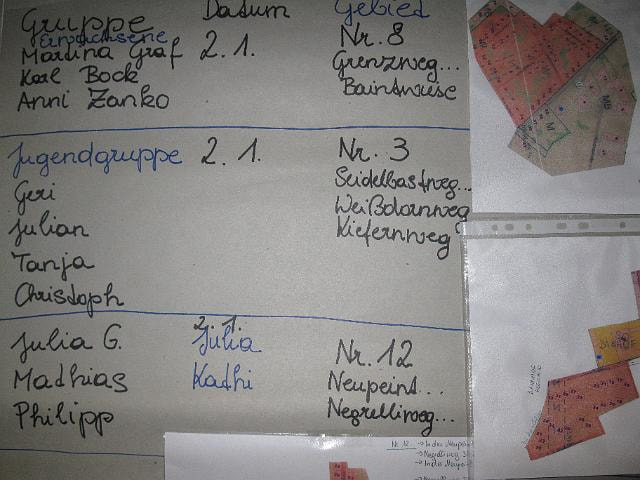 Gruppe Datum Gebiet
Erwachsene
Martina Graf 2.1. Nr. 8
Karl Bock Grenzweg...
Anni Zanko Baintwiese
Jugendgruppe 2.1. Nr. 3
Geri Seidelbastweg...
Julian Weißdornweg
Tanja Kiefernweg
Christoph
2.1.
Julia G. Julia Nr. 12
Mathias Kathi Neupeint...
Philipp Negrelliweg...
Nr. 12